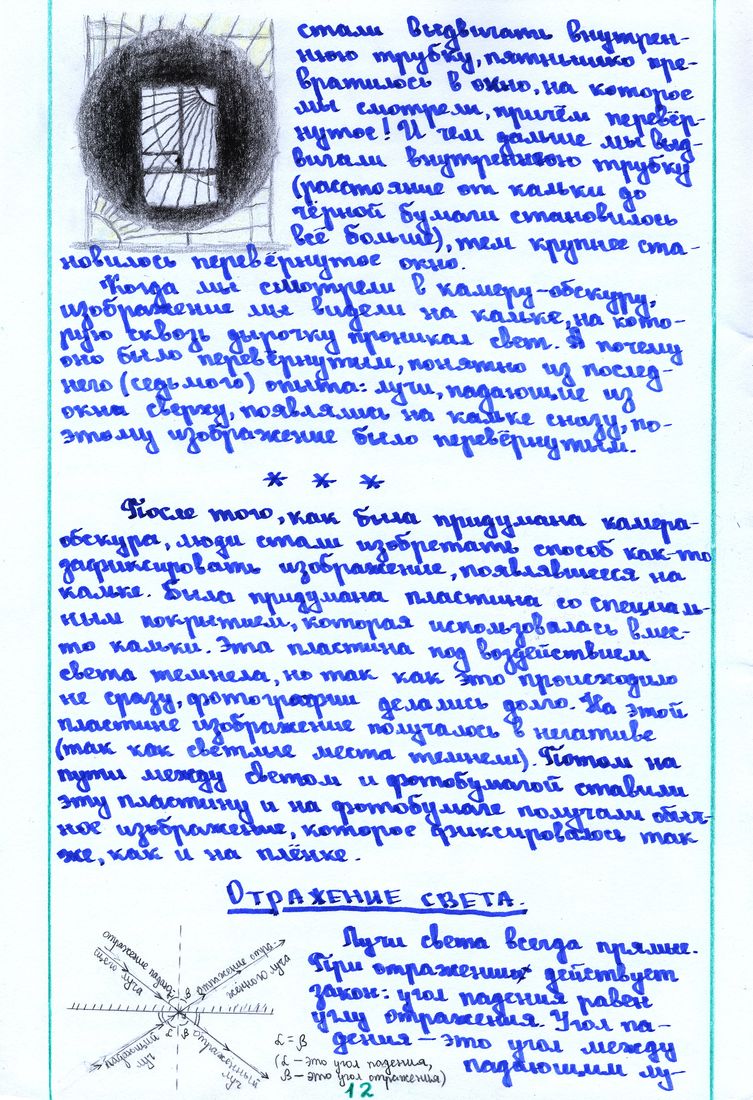 стали выдвигать внутрен-
нюю трубку, пятнышко пре-
вратилось в окно, на которое
мы смотрели, причём перевёр-
нутое! И чем дальше мы выд-
вигали внутреннюю трубку
(расстояние от кальки до
чёрной бумаги становилось
всё больше), тем крупнее ста-
новилось перевёрнутое окно.
Когда мы смотрели в камеру-обскуру,
изображение мы видели на кальке, на кото-
рую сквозь дырочку проникал свет. А почему
оно было перевёрнутым, понятно из послед-
него (седьмого) опыта: лучи, падающие из
окна сверху, появлялись на кальке снизу, по-
этому изображение было перевёрнутым.
* * *
После того, как была придумана камера-
обскура, люди стали изобретать способ как-то
зафиксировать изображение, появлявшееся на
кальке. Была придумана пластина со специаль-
ным покрытием, которая использовалась вмес-
то кальки. Эта пластина под воздействием
света темнела, но так как это происходило
не сразу, фотографии делались долго. На этой
пластине изображение получалось в негативе
(так как светлые места темнели). Потом на
пути между светом и фотобумагой ставили
эту пластину и на фотобумаге получали обыч-
ное изображение, которое фиксировалось так
же, как и на плёнке.
ОТРАЖЕНИЕ СВЕТА.
Лучи света всегда прямые.
При отражении действует
закон: угол падения равен
углу отражения. Угол па-
дения – это угол между
падающим лу-
отражение падаю-
щего луча
отражение отра-
жённого луча
падающий
луч
отраженный
луч
α = β
(α – это угол падения,
β – это угол отражения)
12